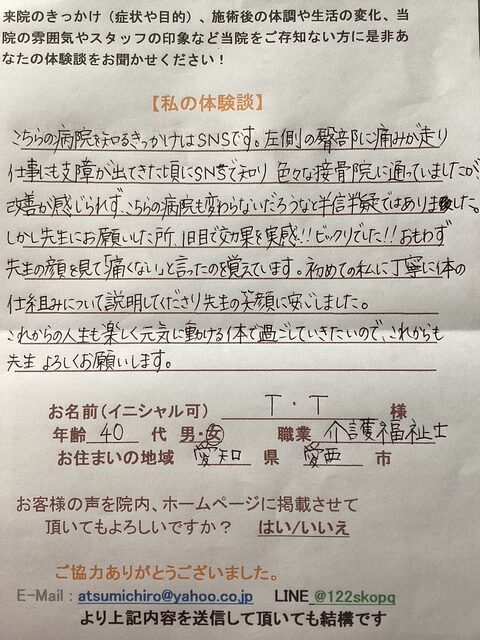 来院のきっかけ（症状や目的）、施術後の体調や生活の変化、当
院の雰囲気やスタッフの印象など当院をご存知ない方に是非あ
なたの体験談をお聞かせください！
【私の体験談】
こちらの病院を知るきっかけはSNSです。左側の臀部に痛みが走り
仕事にも支障が出てきた頃にSNSで知り 色々な接骨院に通っていましたが、
改善が感じられず、こちらの病院も変わらないだろうなと半信半疑ではありました。
しかし先生にお願いした所、1回目で効果を実感!! ビックリでした!! おもわず
先生の顔を見て「痛くない」と言ったのを覚えています。初めての私に丁寧に体の
仕組みについて説明してくださり先生の笑顔に安心しました。
これからの人生も楽しく元気に動ける体で過ごしていきたいので、これからも
先生 よろしくお願いします。
お名前（イニシャル可） T・T 様
年齢 40 代 男・女 職業 介護福祉士
お住まいの地域 愛知 県 愛西 市
お客様の声を院内、ホームページに掲載させて
頂いてもよろしいですか？ はい/いいえ
ご協力ありがとうございました。
E-Mail：atsumichiro@yahoo.co.jp LINE @122skopq
より上記内容を送信して頂いても結構です